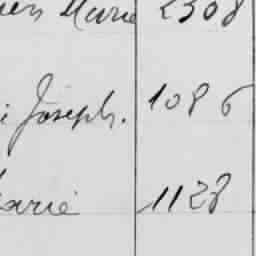 Marie 2308
Joseph. 1086
Marie 1128